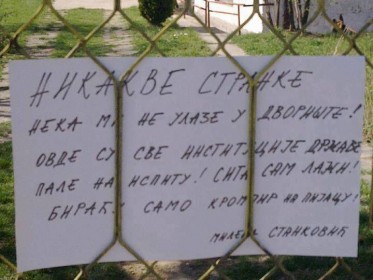 НИКАКВЕ СТРАНКЕ
НЕКА МИ НЕ УЛАЗЕ У ДВОРИШТЕ!
ОВДЕ СУ СВЕ ИНСТИТУЦИЈЕ ДРЖАВЕ
ПАЛЕ НА ИСПИТУ! СИТА САМ ЛАЖИ!
САМО КРОМПИР НА ПИЈАЦУ!
СТАНКОВИЋ